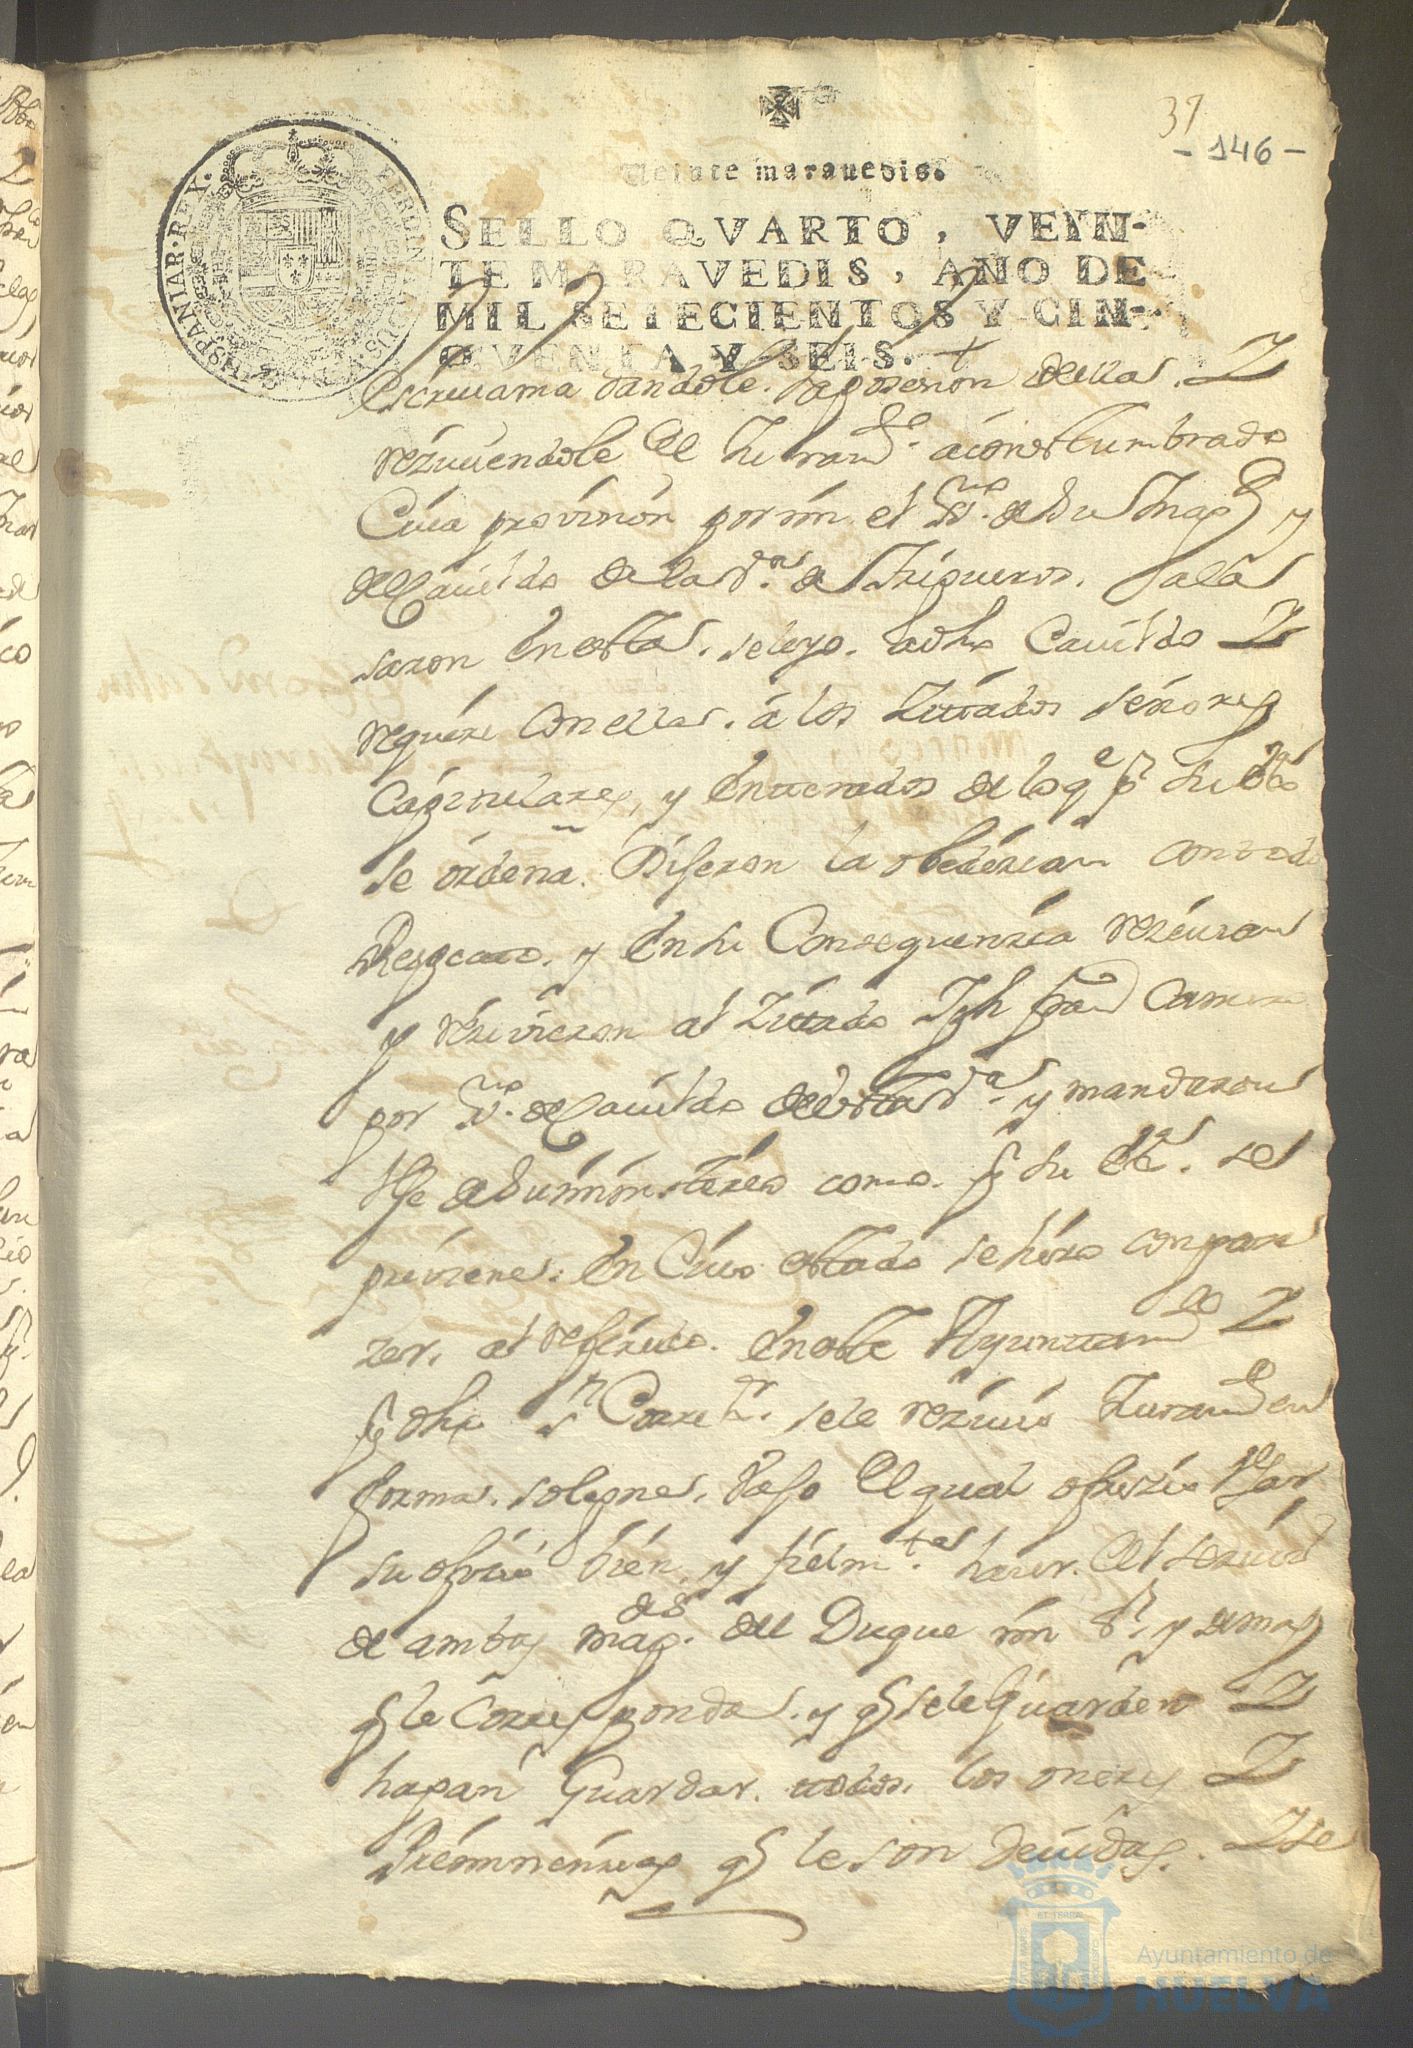 37
- 146 -
Veinte maravedis.
SELLO QVARTO, VEYN-
TE MARAVEDIS, AÑO DE
MIL SETECIENTOS Y CIN-
QVENTA Y SEIS.
HISPANIAR·REX·
Escriuania dandole la posesion de ella
reziuiendole el Juram.to aconstumbrado
Cuia provision por sin el Ss.no de Su
del Cauildo de la v.a de Trigueros.
saron en esta. se leyo. a dho Cauildo
requiere con ellas. á los zitados Señores
Capitulares, y enterados de lo q.e p.r Su Ex.a
se órdena. Dijeron la obedezian con todo
Respecto. y en su Consequenzia reziuian
y rezivieron al Zitado Jph fran.co
por ss.no de Cauildo de esta v.a y mandaron
Use de Su ministerio como. p.r Su Ex.a se
previene. en Cuio estado se hizo conpare
zer, al referido. en este Ayuntam.to
p.r dho s.r Corre.dor se le reziuio Juram.to en
forma. solegne, vajo el qual ofrezio Usar
su ofizio bien, y fielm.te hazer. el seruizio
de ambas mag.des del Duque mi s.r y demas
q.e le Corresponda. y q.e se le Guarden
hagan Guardar. todos. los onores
Preminenzias q.e le son deuidas. se
Ayuntamiento de
HUELVA